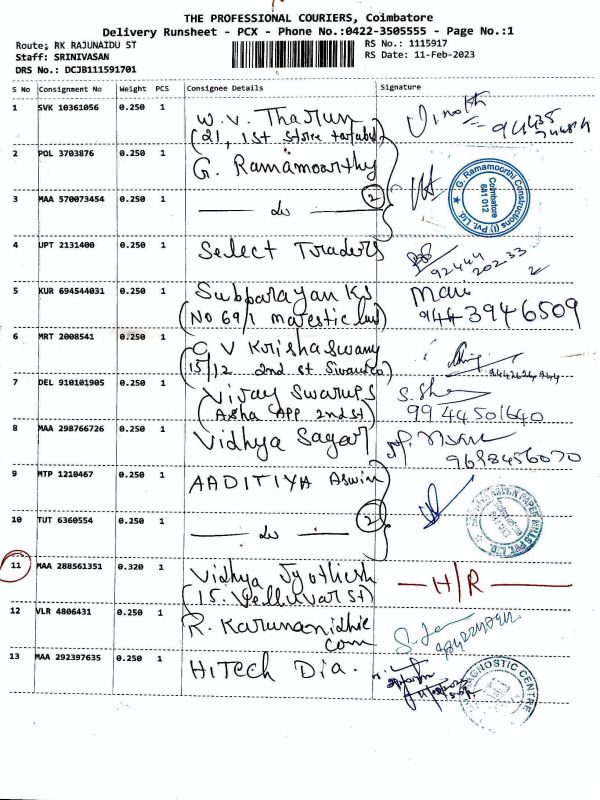 THE PROFESSIONAL COURIERS, Coimbatore
Delivery Runsheet - PCX - Phone No.:0422-3505555 - Page No.:1
Route; RK RAJUNAIDU ST
RS No.: 1115917
Staff: SRINIVASAN
RS Date: 11-Feb-2023
DRS No.: DCJB111591701
S No Consignment No Weight PCS Consignee Details Signature
1 SVK 10361056 0.250 1 W. V. Tharun
(21, 1st
94435
2 POL 3703876 0.250 1 G. Ramamoorthy
G. Ramamoorthi Constructions (I) Pvt. Ltd.
Coimbatore
641 012
3 MAA 570073454 0.250 1 — do — 2
4 UPT 2131400 0.250 1 Select Traders
92444
20233
5 KUR 694544031 0.250 1 Subbarayan KS
(No 69/1 majestic
Mani
9443946509
6 MRT 2008541 0.250 1 C V Krishaswamy
15/12 2nd st
7 DEL 910101905 0.250 1 Vijay Swarups
(Asha APP 2nd st)
9944501640
8 MAA 298766726 0.250 1 Vidhya Sagar
9698456070
9 MTP 1210467 0.250 1 AADITIYA Aswin
10 TUT 6360554 0.250 1 — do — 2
11 MAA 288561351 0.320 1 Vidhya Jyothish
(15. Velluvar st)
— H/R —
12 VLR 4806431 0.250 1 R. Karunanidhie
com
13 MAA 292397635 0.250 1 HiTech Dia.
DIAGNOSTIC CENTRE